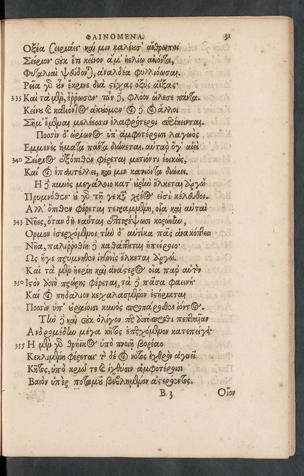 ΦΑΙΝΟΜΕΝΑ. 31
Ὀξέα σειριάει· καί μιν καλέουσ' ἄνθρωποι
Σείριον· οὐκ ἔτι κεῖνον ἅμ' ἠελίῳ ἀνιόντα,
Φυταλιαὶ ψεύδονται ἀναλδέα φυλλιόωσαι.
Ῥεῖα γὰρ οὖν ἔκρινε διὰ στίχας ὀξὺς ἀΐξας
335 Καὶ τὰ μὲν ἔρρωσεν, τῶν δὲ φλόον ὤλεσε πάντα.
Κείνου καὶ κατιόντος ἀκούομεν· οἱ δὲ καὶ ἄλλοι
Σῆμ' ἔμμεναι μελέεσσιν ἐλαφρότεροι περίκεινται.
Ποσσὶν δ' ὠρίωνος ὑπ' ἀμφοτέροισι λαγωὸς
Ἐμμενὲς ἤματα πάντα διώκεται. αὐτὰρ ὅγ' αἰεὶ
340 Σείριος ἐξόπιθεν φέρεται μετιόντι ἐοικώς,
Καί οἱ ἐπαντέλλει, καί μιν κατιόντα διώκει.
Ἡ δὲ κυνὸς μεγάλοιο κατ' οὐρὴν ἕλκεται ἀργὼ
Πρυμνόθεν· οὐ γὰρ τῇγε κατὰ χρέος εἰσὶ κέλευθοι.
Ἀλλ' ὄπιθεν φέρεται τετραμμένη, οἷα καὶ αὐταὶ
345 Νῆες, ὅταν δὴ ναῦται ἐπιστρέψωσι κορώνην,
Ὅρμον ἐσερχόμενοι· τὴν δ' αὐτίκα πᾶς ἀνακόπτει
Νῆα, παλιρροθίη δὲ καθάπτεται ἠπείροιο·
Ὣς ἥγε πρύμνηθεν ἰησονὶς ἕλκεται ἀργώ.
Καὶ τὰ μὲν ἠερίη καὶ ἀνάστερος οἷα παρ' αὐτὸν
350 Ἱστὸν ἀπὸ πρώρης φέρεται, τὰ δὲ πᾶσα φαεινή·
Καί οἱ πηδάλιον κεχαλασμένον ἐστήρικται
Ποσσὶν ὑπ' οὐραίοισι κυνὸς προπάροιθεν ἰόντος.
Τὴν δὲ καὶ οὐκ ὀλίγον περ ἀπόπροθι πεπτηυῖαν
Ἀνδρομέδην μέγα κῆτος ἐπερχόμενον κατεπείγει·
355 Ἡ μὲν γὰρ θρήικος ὑπὸ πνοιῇ βορέαο
Κεκλιμένη φέρεται· τὸ δέ οἱ νότος ἐχθρὸν ἀγινεῖ
Κῆτος, ὑπὸ κριῷ τε καὶ ἰχθύσιν ἀμφοτέροισι
Βαιὸν ὑπὲρ ποταμοῦ βεβλημένον ἀστερόεντος.
B 3 Οἷον